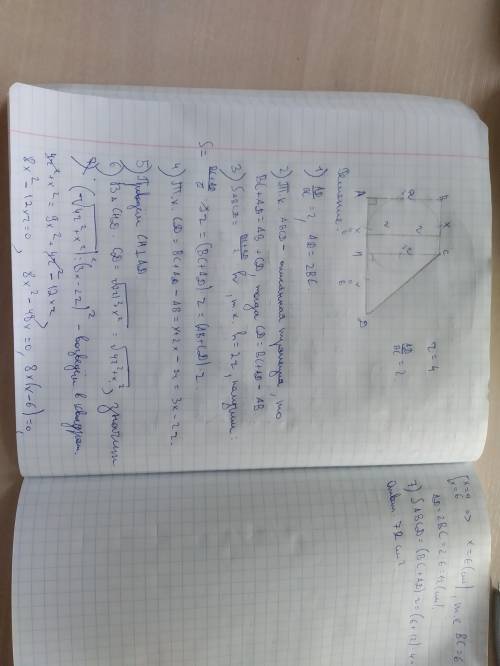 Решение:
A
B
C
D
H
x
x
x
r
r
r
r = 4
AD/BC = 2
1) AD/BC = 2, AD = 2BC
2) Т.к. ABCD - описанная трапеция, то
BC + AD = AB + CD, тогда CD = BC + AD - AB
3) S ABCD = BC+AD/2 · h, т.к. h = 2r, получим:
S = BC+AD/2 · 2r = (BC + AD) · r = (AB + CD) · r
4) Т.к. CD = BC + AD - AB = x + 2x - 2r = 3x - 2r.
5) Проведём CH ⊥ AD
6) В Δ CHD: CD = = √4r² + x², значит
(√4r² + x²)² = (3x - 2r)² - возведём в квадрат.
4r² + x² = 9x² + 4r² - 12xr
8x² - 12xr = 0, 8x² - 48x = 0, 8x(x - 6) = 0,
[x = 0
x = 6 => x = 6 (см), т.е. BC = 6
AD = 2BC = 2·6 = 12 (см).
7) S ABCD = (BC + AD) · r = (6 + 12) · 4
Ответ: 72 см²